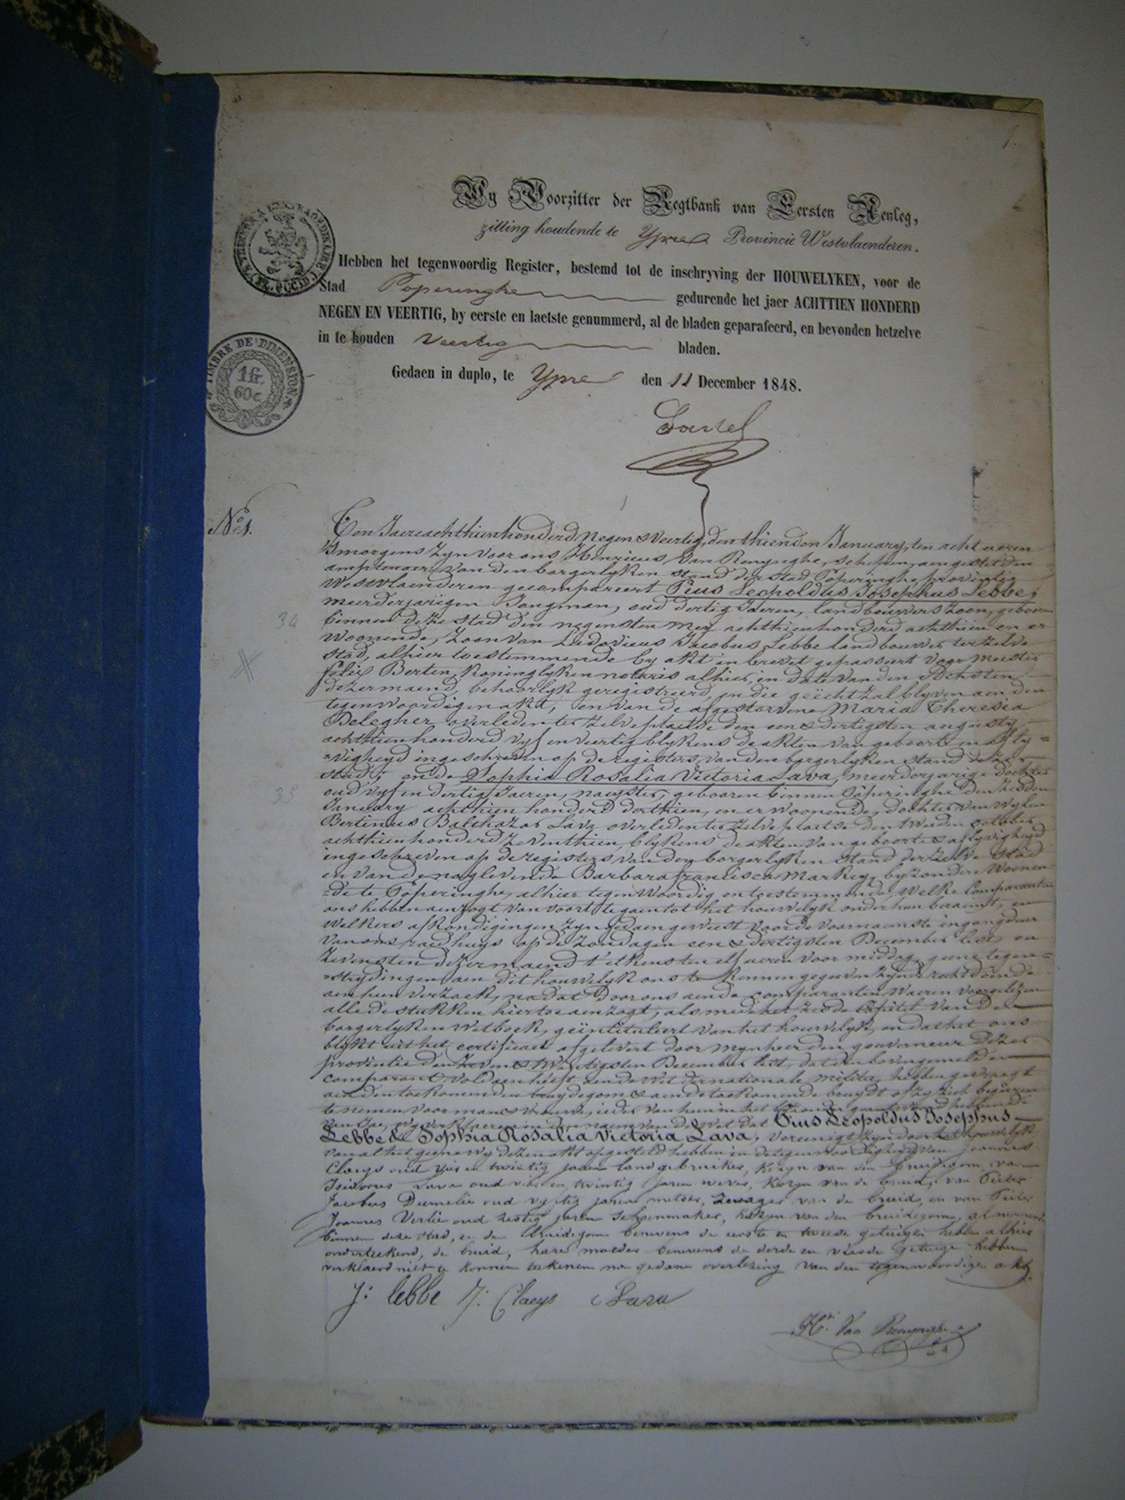 1.
Wy Voorzitter der Regtbank van Eersten Aenleg,
zitting houdende te Ypre Provincie Westvlaenderen.
Hebben het tegenwoordig Register, bestemd tot de inschryving der HOUWELYKEN, voor de
Stad Poperinghe gedurende het jaer ACHTTIEN HONDERD
NEGEN EN VEERTIG, by eerste en laetste genummerd, al de bladen geparafeerd, en bevonden hetzelve
in te houden Veertig bladen.
Gedaen in duplo, te Ypre den 11 December 1848.
TIMBRE DE DIMENSION
1 fr.
60 c.
No 1.
Ten Jaere achthienhonderd Negen & Veertig, den thienden January, ten acht ueren
'Smorgens zyn voor ons Henricus Van Renynghe, schepen, aengestelden
amptenaer van den borgerlyken stand der stad Poperinghe provintie
Westvlaenderen gecompareert Pius Leopoldus Josephus Lebbe,
meerderjarigen Jongman, oud dertig Jaeren, landbouwers zoon, geboren
binnen deze stad den negensten mey achthienhonderd achthien en er
Woonende, Zoon van Ludovicus Jacobus Lebbe landbouwer terzelve
stad, alhier toestemmende by akt in brevet gepasseert voor meester
Felix Berten Koninglyken notaris alhier, in date van den achsten
dezer maend, behoorlyk geregistreerd, en die geëcht zal blyven aen den
tegenwoordigen akt, en van de afgestorvene Maria Theresia
Delegher, overleden ter Zelve plaetse den een & dertigsten augusty
achthienhonderd vyf en veertig blykens de akten van geboorte en afly=
vigheyd ingeschreven op de registers van den borgerlyken stand dezer
stad; en de Sophia Rosalia Victoria Lava, meerderjarige dochter
oud vyf en dertig Jaeren, naeyster, geboren binnen Poperinghe den
January achthien honderd derthien, en er woonende, dochter van wylen
Bertinus Balthazar Lava overleden ter zelve plaetse den tweeden october
achthienhonderd zeventhien, blykens de akten van geboorte & aflyvigheyd
ingeschreven op de registers van den borgerlyken stand derzelve stad
en van de nog levende Barbara francisca Markey, byzondere woonen=
de te Poperinghe, alhier tegenwoordig en toestemmende, Welke Comparanten
ons hebben aenzogt van voort te gaen tot het houwelyk onder hun beraemt, en
Welkers afkondigingen zyn gedaen geweest voor de voornaemste ingangdeur
van ons raedhuys op de Zondagen een & dertigsten December lest, en
Zevensten dezer maend t'elkens ten elf ueren voor middag, geene tegen=
strydingen aen dit houwelyk ons te kennen gegeven zynde recht doende
aen hun verzoek, na dat door ons aende comparanten Waeren voorgelezen
alle de stukken hiertoe aenzogt, als mede het zesde Capitel van den
borgerlyken Wetboek, geïntituleert van het houwelyk, en dat het ons
blykt uit het certificaet afgelevert door Mynheer den gouverneur dezer
provintie den Zeven & twintigsten December lest, dat den bovengemelden
comparant voldaen heeft aen de Wet der nationale militie, hebben gevraegt
aen den toekomenden bruydegom & aen de toekomende bruyd of zy zich begeeren
te nemen voor man & vrouw, ieder van hun
van Ja, wy verklaeren in den naem van de wet dat Pius Leopoldus Josephus
Lebbe & Sophia Rosalia Victoria Lava, vereenigt zyn door het houwelyk
van al het gene wy dezen akt opgesteld hebben in de tegenwoordigheyd van Joannes
Claeys oud vyf en twintig jaren landgebruiker, Kozyn van den bruidegom, van
Isidorus Lava oud vier en twintig jaren wever, Kozyn van de bruid, van Pieter
Jacobus Dumelie oud vyftig jaren metser, Zwager van de bruid, en van Pieter
Joannes Verlie oud zestig jaren schoenmaker, kozyn van den bruidegom, al woonende
binnen deze stad, en de Bruidegom benevens de eerste en tweede getuigen hebben alhier
onderteekend, de bruid, hare moeder benevens de derde en vierde getuige hebben
verklaerd niet te konnen teekenen na gedane overlezing van den tegenwoordige akt.
34
35
J: Lebbe J: Claeys Lava
Hri Van Renynghe